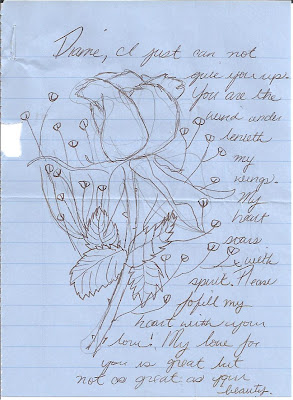 Diane, I just can not
give you up.
You are the
wind under
beneith
my
wings.
My
heart
soars
with
spirit. Please
fofill my
heart with your
love! My love for
you is great but
not as great as your
beauty.